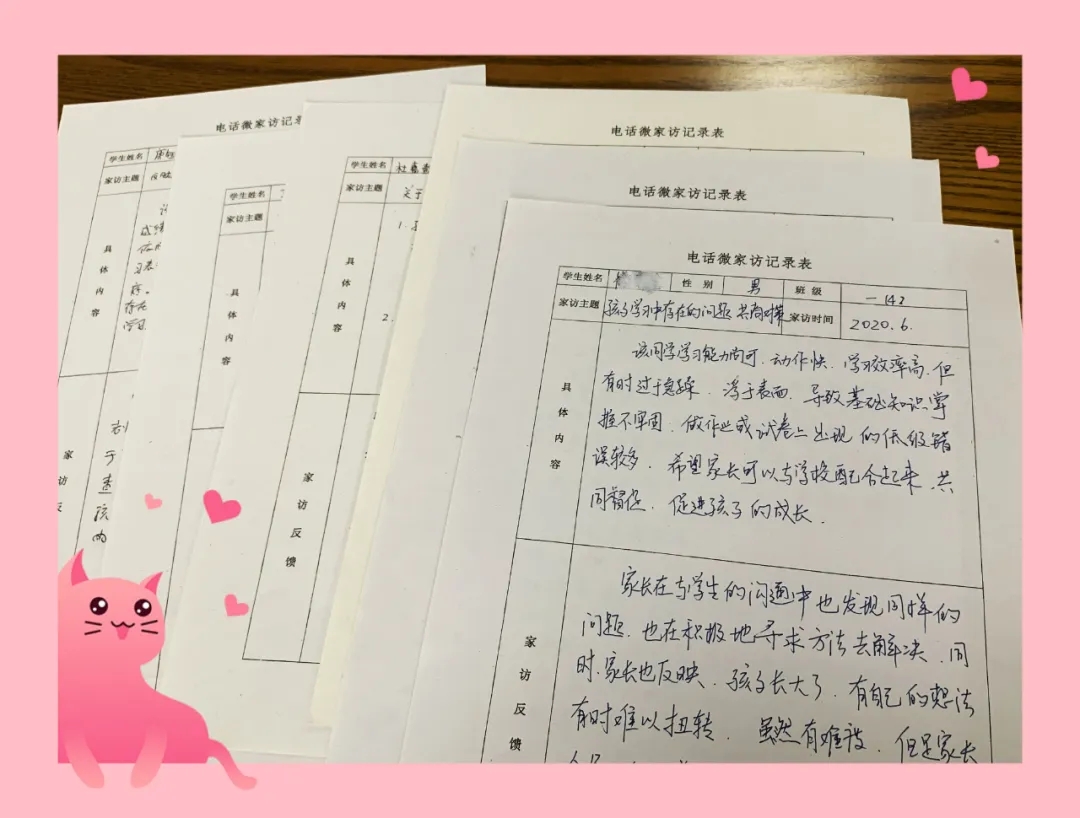 电话微家访记
学生姓名
家访主题
具体内容
学生姓名
家访主题
具体内容
学生姓名 杜嘉
家访主题 关于
1.
具体内容
2.
家访反馈
电话微家访记录表
电话微家访记录表
电话微家访记录表
学生姓名 性别 男 班级 一142
家访主题 孩子学习中存在的问题 共商对策 家访时间 2020.6.
具体内容
该同学学习能力尚可,动作快,学习效率高,但
有时过于急躁,浮于表面,导致基础知识掌
握不牢固,做作业或试卷上出现的低级错
误较多,希望家长可以与学校配合起来,共
同督促,促进孩子的成长.
家访反馈
家长在与学生的沟通中也发现同样的
问题,也在积极地寻求方法去解决,同
时,家长也反映,孩子长大了,有自己的想法
有时难以扭转,虽然有难度,但是家长